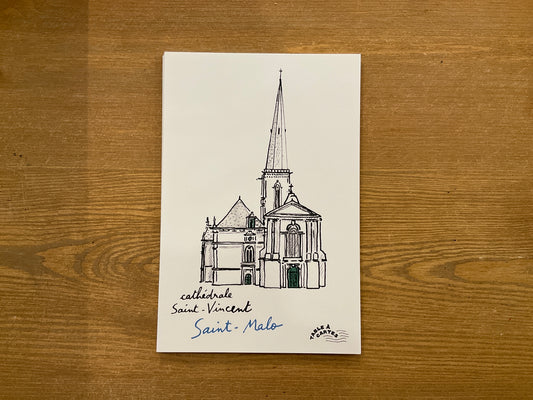 cathédrale
Saint-Vincent
Saint-Malo
TABLE À
CARTES